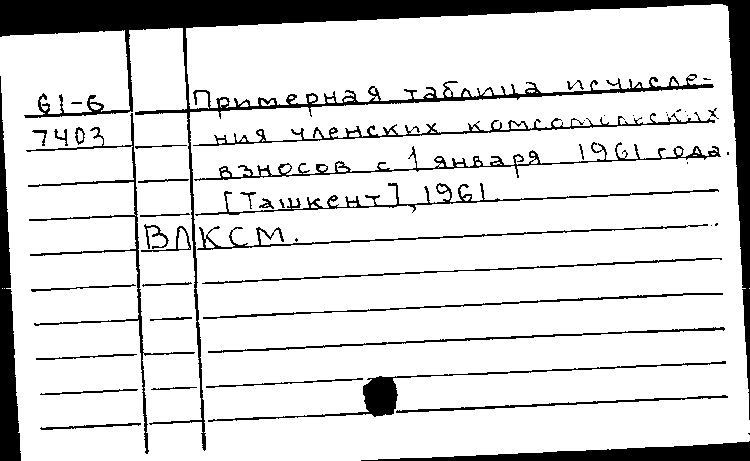 61-6 Примерная таблица исчисле-
7403 ния членских комсомольских
взносов с 1 января 1961 года.
[Ташкент], 1961.
ВЛКСМ.